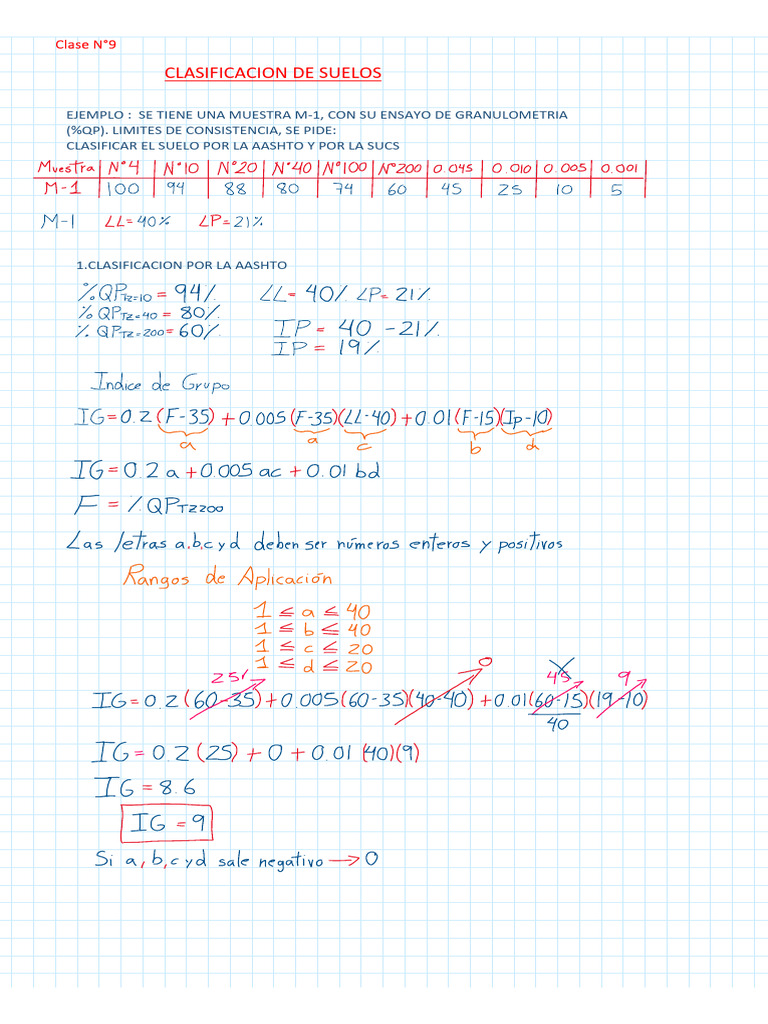 Clase N°9
CLASIFICACION DE SUELOS
EJEMPLO : SE TIENE UNA MUESTRA M-1, CON SU ENSAYO DE GRANULOMETRIA
(%QP). LIMITES DE CONSISTENCIA, SE PIDE:
CLASIFICAR EL SUELO POR LA AASHTO Y POR LA SUCS
Muestra N°4 N°10 N°20 N°40 N°100 N°200 0.045 0.010 0.005 0.001
M-1 100 94 88 80 74 60 45 25 10 5
M-1 LL=40% LP=21%
1.CLASIFICACION POR LA AASHTO
%QPTz=10 = 94% LL= 40% LP=21%
%QPTz=40 = 80%
IP = 40 -21%
% QPTz=200 = 60%
IP = 19%
Indice de Grupo
IG=0.2(F-35)+0.005(F-35)(LL-40)+0.01(F-15)(Ip-10)
a a c b d
IG=0.2a+0.005ac+0.01bd
F = %QPTz200
Las letras a,b,c y d deben ser números enteros y positivos
Rangos de Aplicación
1 ≤ a ≤ 40
1 ≤ b ≤ 40
1 ≤ c ≤ 20
1 ≤ d ≤ 20
25 0 45 9
IG=0.2(60-35)+0.005(60-35)(40-40)+0.01(60-15)(19-10)
40
IG=0.2(25)+0+0.01(40)(9)
IG=8.6
IG=9
Si a,b,c y d sale negativo → 0